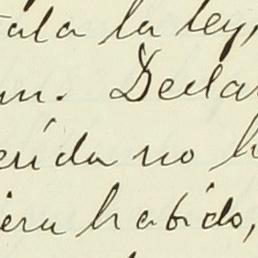 tala la ley,
un. Declar
erida no h
iera habido,